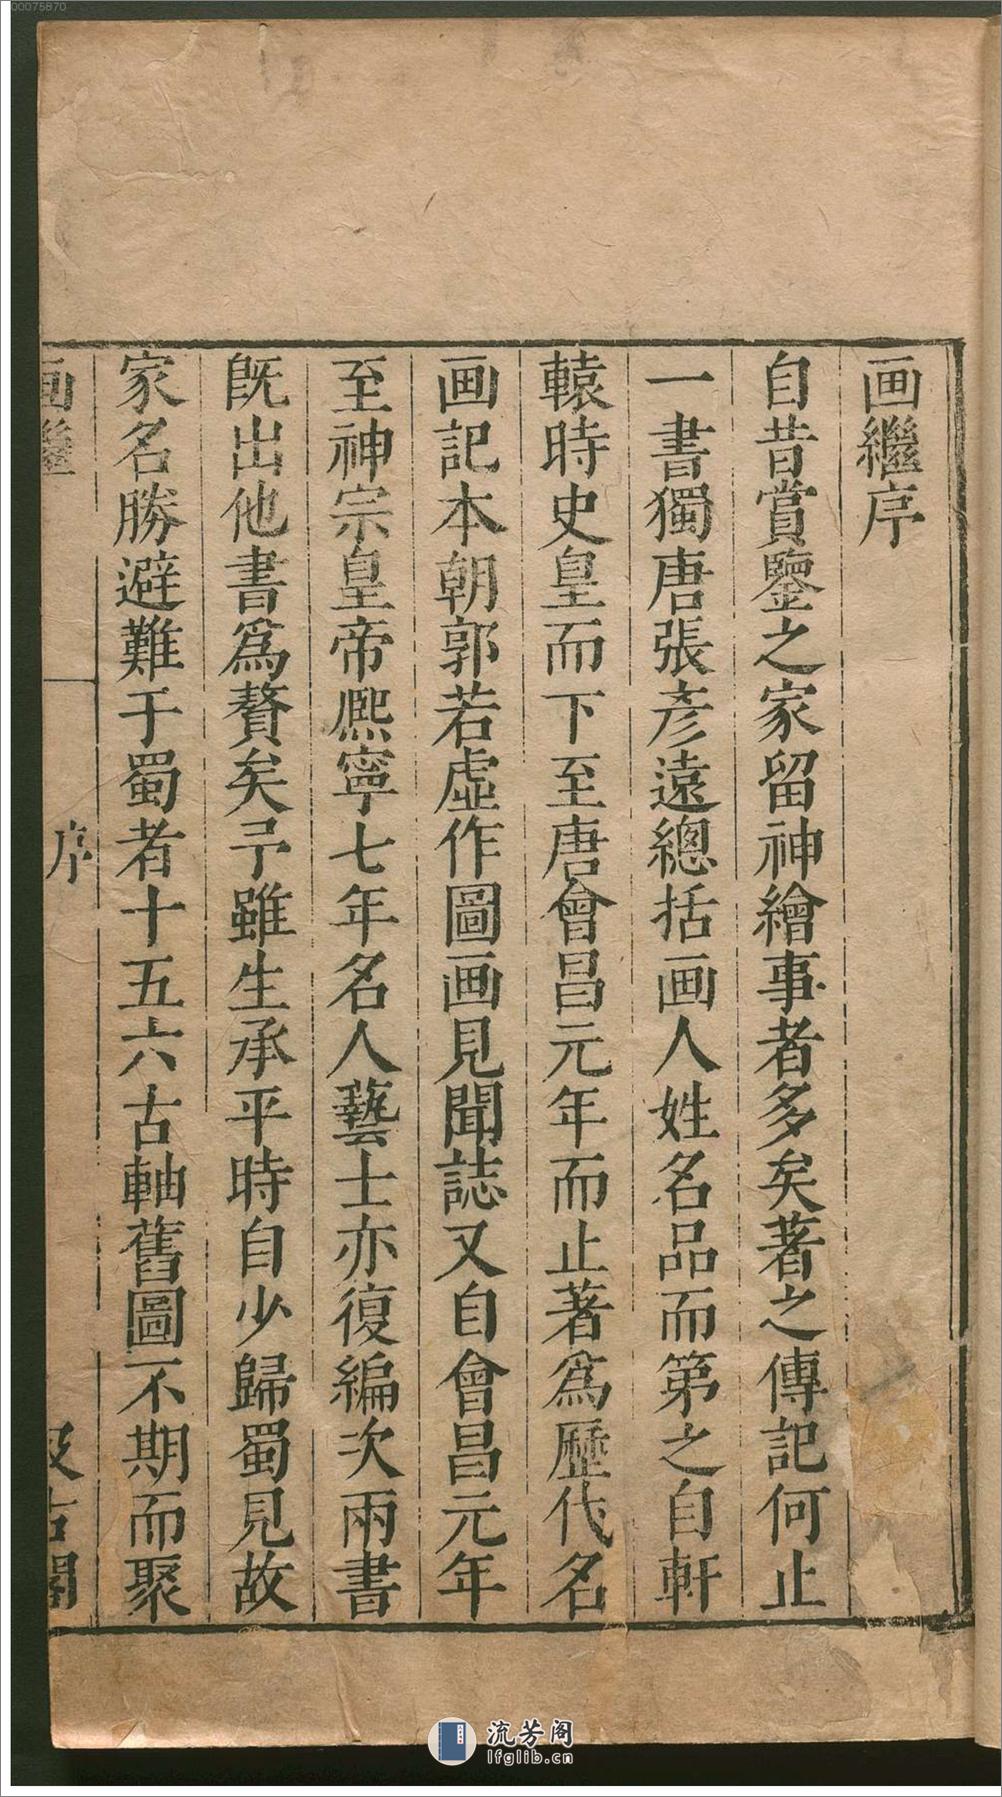 00075870
画繼序
自昔賞鑒之家留神繪事者多矣著之傳記何止
一書獨唐張彥遠總括画人姓名品而第之自軒
轅時史皇而下至唐會昌元年而止著爲歷代名
画記本朝郭若虛作圖画見聞誌又自會昌元年
至神宗皇帝熈寧七年名人藝士亦復編次兩書
旣出他書爲贅矣予雖生承平時自少歸蜀見故
家名勝避難于蜀者十五六古軸舊圖不期而聚
画繼 一 序 汲古閣
流芳阁
lfglib.cn